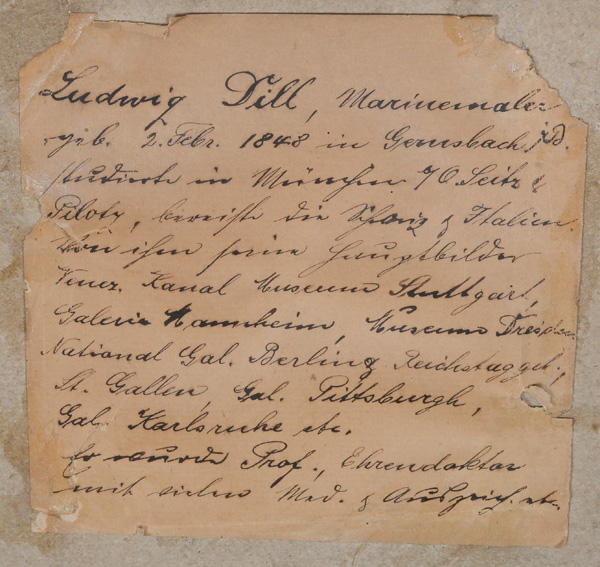 Ludwig Dill, Marinemaler
geb. 2. Febr. 1848 in Gernsbach i/B.
studierte in München b/O. Seitz &
Piloty, bereiste die Schweiz & Italien.
Von ihm seine Hauptbilder
Venez. Kanal Museum Stuttgart,
Galerie Mannheim, Museum Dresden
National Gal. Berling Reichstaggeb.,
St. Gallen, Gal. Pittsburgh,
Gal. Karlsruhe etc.
Er wurde Prof., Ehrendoktor
mit vielen Med. & Auszeich. etc.